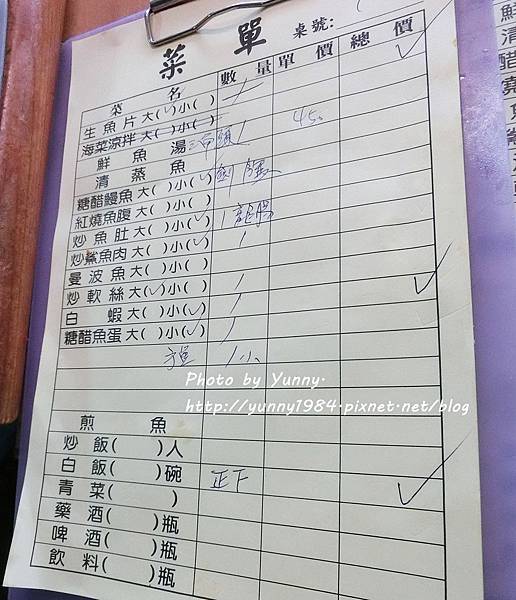 菜 單 桌號:
菜 名 數 量 單 價 總 價
生 魚 片 大(✓)小( ) /
海菜涼拌 大( )小( )
鮮 魚 湯 / 450
清 蒸 魚
糖醋鰻魚 大( )小(✓)
紅燒魚腹 大( )小( )
炒 魚 肚 大( )小(✓) 1 龍腸
炒鯊魚肉 大( )小(✓) /
曼 波 魚 大( )小( )
炒 軟 絲 大(✓)小( ) /
白 蝦 大( )小(✓) /
糖醋魚蛋 大( )小(✓) /
/ 小
煎 魚
炒 飯( )人
白 飯( )碗 正下
青 菜( )
藥 酒( )瓶
啤 酒( )瓶
飲 料( )瓶
Photo by Yunny.
http://yunny1984.pixnet.net/blog